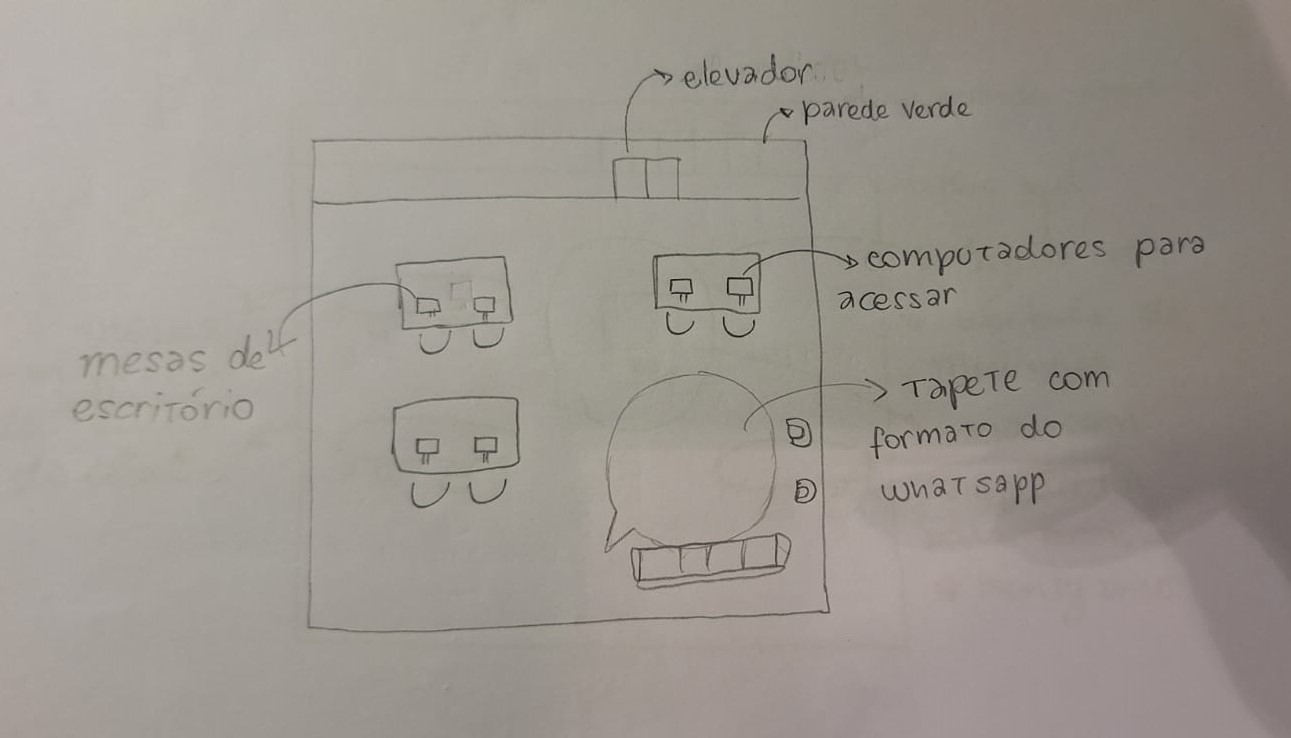 elevador
parede verde
computadores para
acessar
mesas de
escritório
tapete com
formato do
whatsapp